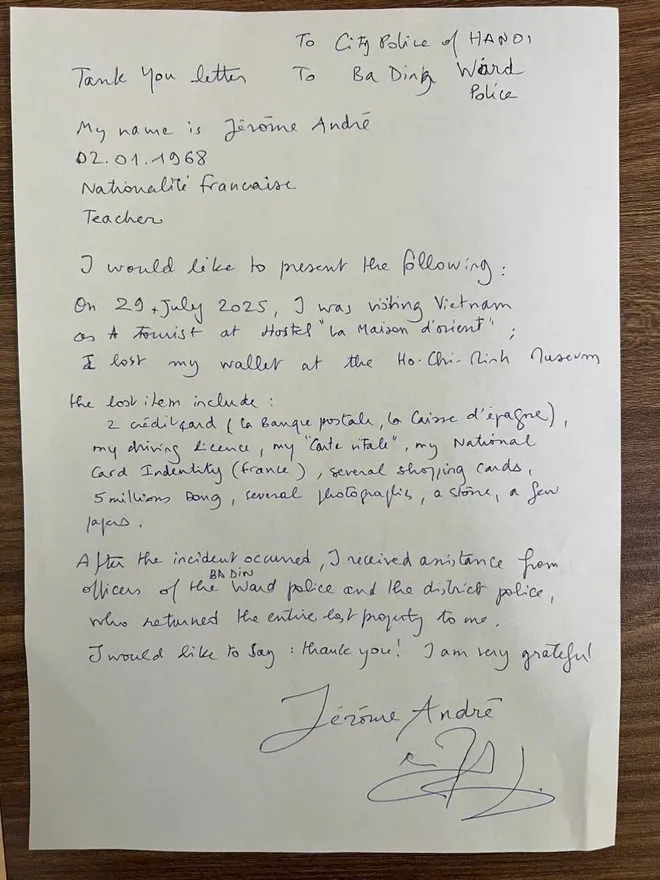 To City Police of HANOI
Tank You letter To Ba Ding Ward
Police
My name is Jérôme André
02.01.1968
Nationalité francaise
Teacher
I would like to present the following :
On 29 July 2025, I was visiting Vietnam
as A tourist at Hostel "La Maison d'orient" ;
I lost my wallet at the Ho-Chi-Minh Museum
the lost item include :
2 crédit card (la Banque postale, la Caisse d'épagne),
my driving licence, my "Carte vitale", my National
Card Indentity (france), several shopping cards,
5 millions Dong, several photographies, a stone, a few
papers.
After the incident occurred, I received assistance from
BA DIN
officers of the Ward police and the district police,
who returned the entire lost property to me.
I would like to say : thank you! I am very grateful
Jérôme André